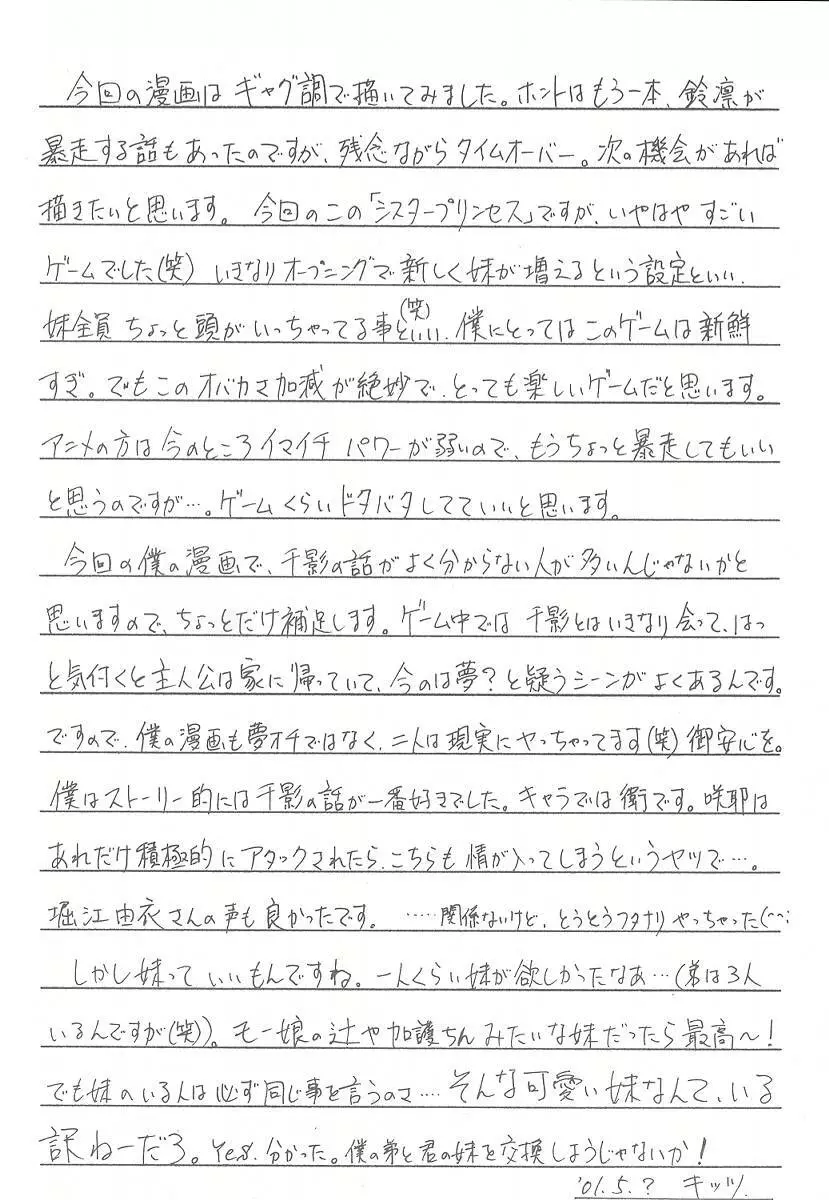 今回の漫画はギャグ調で描いてみました。ホントはもう一本、鈴凛が
暴走する話もあったのですが、残念ながらタイムオーバー。次の機会があれば
描きたいと思います。今回のこの「シスタープリンセス」ですが、いやはやすごい
ゲームでした(笑) いきなりオープニングで新しく妹が増えるという設定といい、
妹全員ちょっと頭がいっちゃってる事といい(笑)、僕にとってはこのゲームは新鮮
すぎ。でもこのオバカさ加減が絶妙で、とっても楽しいゲームだと思います。
アニメの方は今のところイマイチパワーが弱いので、もうちょっと暴走してもいい
と思うのですが…。ゲームくらいドタバタしてていいと思います。
今回の僕の漫画で、千影の話がよく分からない人が多いんじゃないかと
思いますので、ちょっとだけ補足します。ゲーム中では千影とはいきなり会って、はっ
と気付くと主人公は家に帰っていて、今のは夢?と疑うシーンがよくあるんです。
ですので、僕の漫画も夢オチではなく、二人は現実にヤっちゃってます(笑)御安心を。
僕はストーリー的には千影の話が一番好きでした。キャラでは衛です。咲耶は
あれだけ積極的にアタックされたら、こちらも情が入ってしまうというヤツで…。
堀江由衣さんの声も良かったです。……関係ないけど、とうとうフタナリやっちゃった(^^;
しかし妹っていいもんですね。一人くらい妹が欲しかったなあ…(弟は3人
いるんですが(笑))。モー娘の辻や加護ちんみたいな妹だったら最高〜!
でも妹のいる人は必ず同じ事を言うのさ……そんな可愛い妹なんて、いる
訳ねーだろ。Yes.分かった。僕の弟と君の妹を交換しようじゃないか!
'01.5.? キッツ